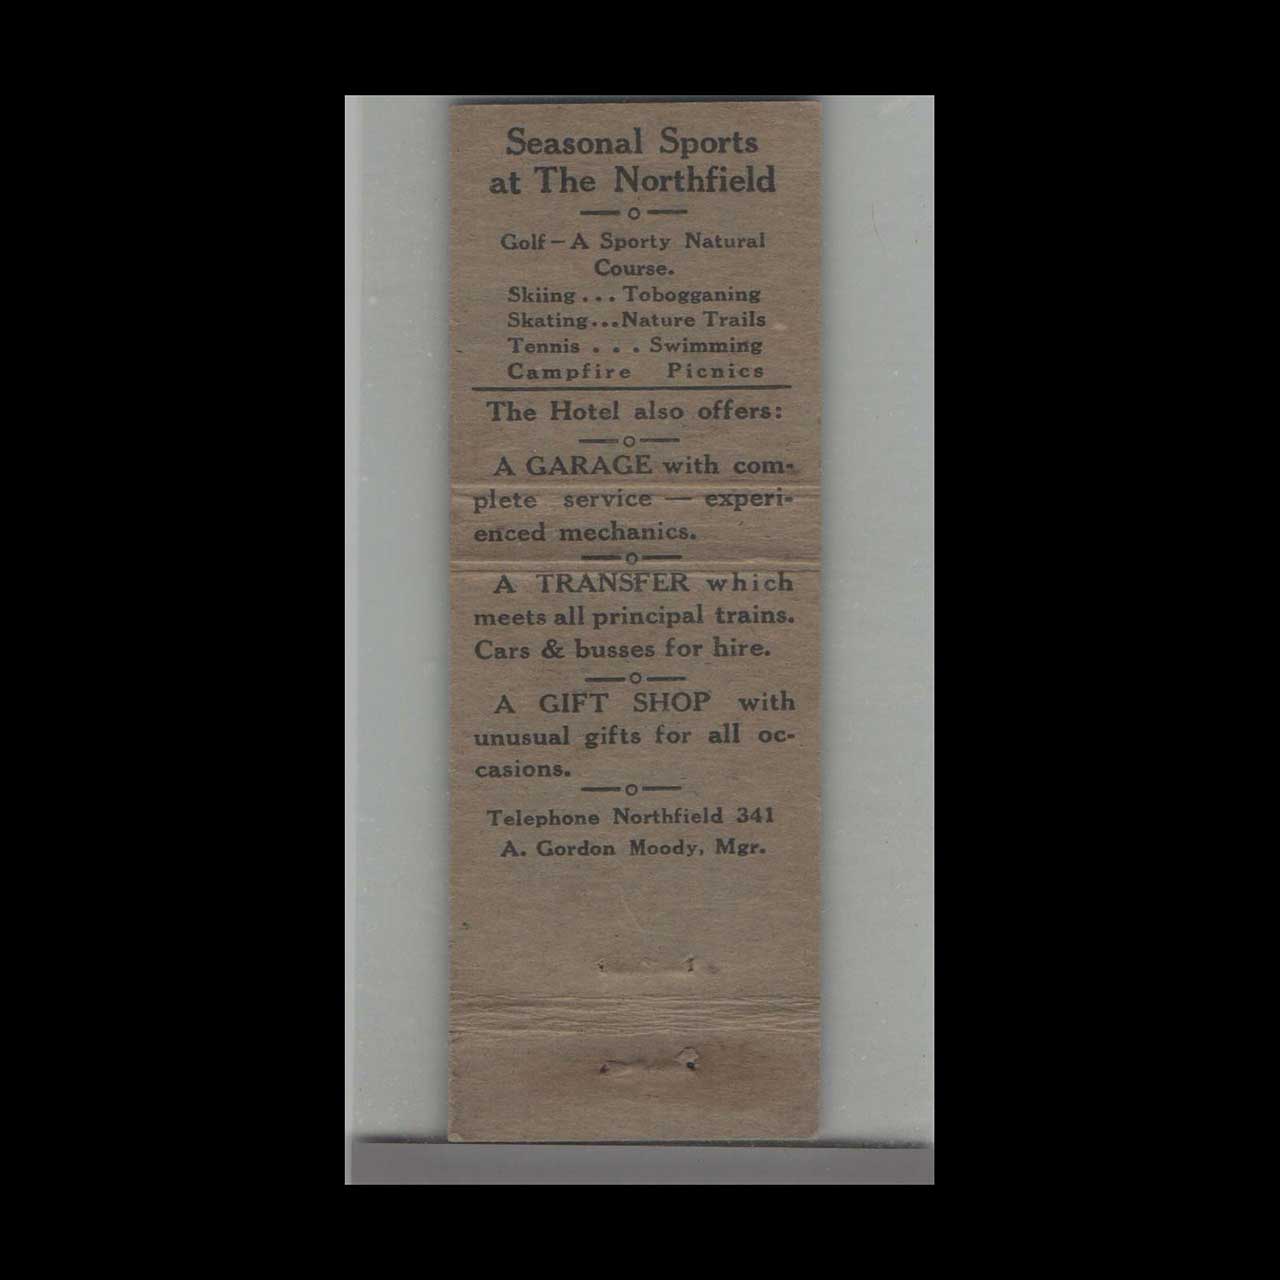 Seasonal Sports
at The Northfield
Golf – A Sporty Natural
Course.
Skiing . . . Tobogganing
Skating...Nature Trails
Tennis . . . Swimming
Campfire Picnics
The Hotel also offers:
A GARAGE with com-
plete service — experi-
enced mechanics.
A TRANSFER which
meets all principal trains.
Cars & busses for hire.
A GIFT SHOP with
unusual gifts for all oc-
casions.
Telephone Northfield 341
A. Gordon Moody, Mgr.